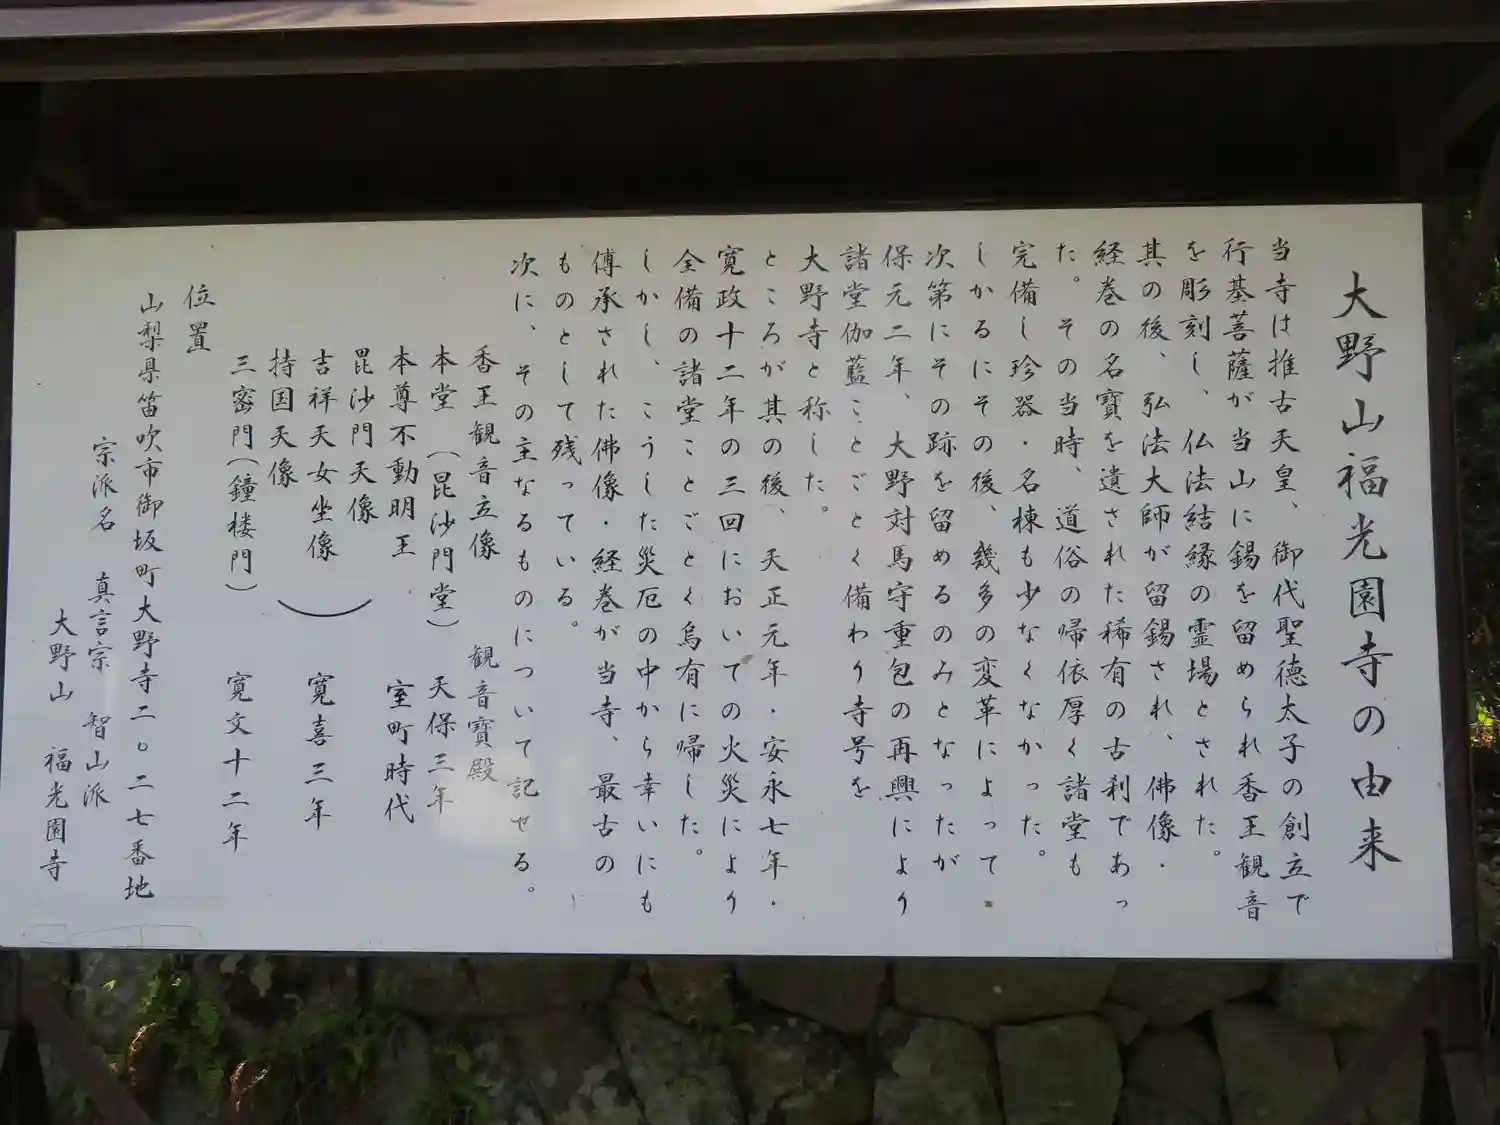 大野山福光園寺の由来
当寺は推古天皇、御代聖徳太子の創立で
行基菩薩が当山に錫を留められ香王観音
を彫刻し、仏法結縁の霊場とされた。
其の後、弘法大師が留錫され、佛像・
経巻の名寶を遺された稀有の古刹であっ
た。その当時、道俗の帰依厚く諸堂も
完備し珍器・名棟も少なくなかった。
しかるにその後、幾多の変革によって・
次第にその跡を留めるのみとなったが
保元二年、大野対馬守重包の再興により
諸堂伽藍ことごとく備わり寺号を
大野寺と称した。
ところが其の後、天正元年・安永七年・
寛政十二年の三回においての火災により
全備の諸堂ことごとく烏有に帰した。
しかし、こうした災厄の中から幸いにも
傳承された佛像・経巻が当寺、最古の
ものとして残っている。
次に、その主なるものについて記せる。
香王観音立像 観音寶殿
本堂（毘沙門堂） 天保三年
本尊不動明王 室町時代
毘沙門天像
吉祥天女坐像 寛喜三年
持国天像
三密門（鐘楼門） 寛文十二年
位置
山梨県笛吹市御坂町大野寺二〇二七番地
宗派名 真言宗 智山派
大野山 福光園寺